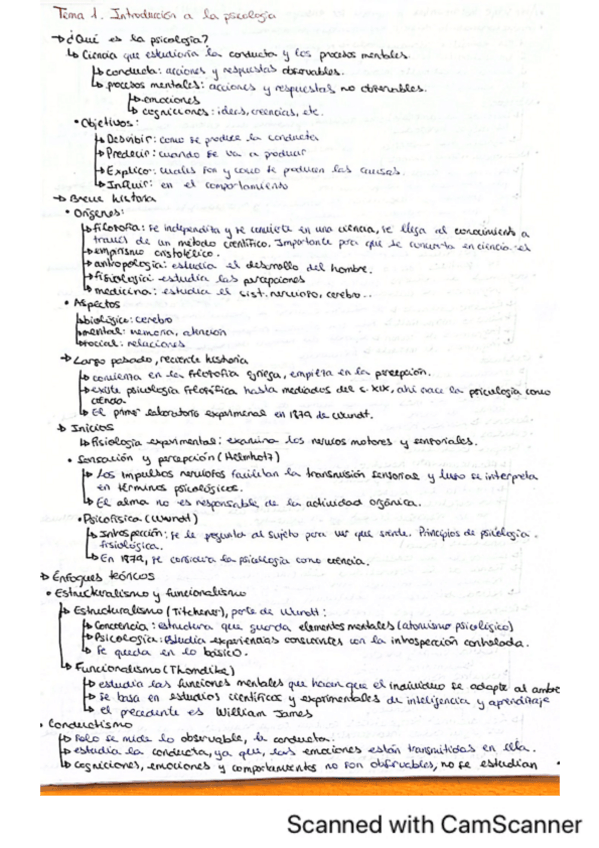 Tema 1. Introducción a la psicología
¿Qué es la psicología?
Ciencia que estudia la conducta y los procesos mentales.
conducta: acciones y respuestas observables.
procesos mentales: acciones y respuestas no observables.
emociones
cogniciones: ideas, creencias, etc.
• Objetivos:
Describir: como se produce la conducta
Predecir: cuando se va a producir
Explicar: cuales son y como se producen las causas.
Influir: en el comportamiento
Breve historia
• Orígenes:
filosofía: se independiza y se convierte en una ciencia, se llega al conocimiento a
través de un método científico. Importante para que se convierta en ciencia el
empirismo aristotélico.
antropología: estudia el desarrollo del hombre.
fisiología: estudia las percepciones
medicina: estudia el sist. nervioso, cerebro..
• Aspectos
biológico: cerebro
mental: memoria, atención
social: relaciones
Largo pasado, reciente historia
comienza en la filosofía griega, empieza en la percepción.
existe psicología filosófica hasta mediados del s. XIX, ahí nace la psicología como
ciencia.
El primer laboratorio experimental en 1879 de Wundt.
Inicios
Fisiología experimental: examina los nervios motores y sensoriales.
• Sensación y percepción (Helmholtz)
Los impulsos nerviosos facilitan la transmisión sensorial y luego se interpreta
en términos psicológicos.
El alma no es responsable de la actividad orgánica.
• Psicofísica (Wundt)
Introspección: se le pregunta al sujeto para ver que siente. Principios de psicología
fisiológica.
En 1879, se considera la psicología como ciencia.
Enfoques teóricos
• Estructuralismo y funcionalismo
Estructuralismo (Titchener), parte de Wundt:
Conciencia: estructura que guarda elementos mentales (atomismo psicológico)
Psicología: estudia experiencias conscientes con la introspección controlada.
Se queda en lo básico.
Funcionalismo (Thondike)
estudia las funciones mentales que hacen que el individuo se adapte al ambie
se basa en estudios científicos y experimentales de inteligencia y aprendizaje
el precedente es William James
• Conductismo
solo se mide lo observable, la conducta.
estudia la conducta, ya que, las emociones están transmitidas en ella.
Cogniciones, emociones y comportamientos no son observables, no se estudian
Scanned with CamScanner